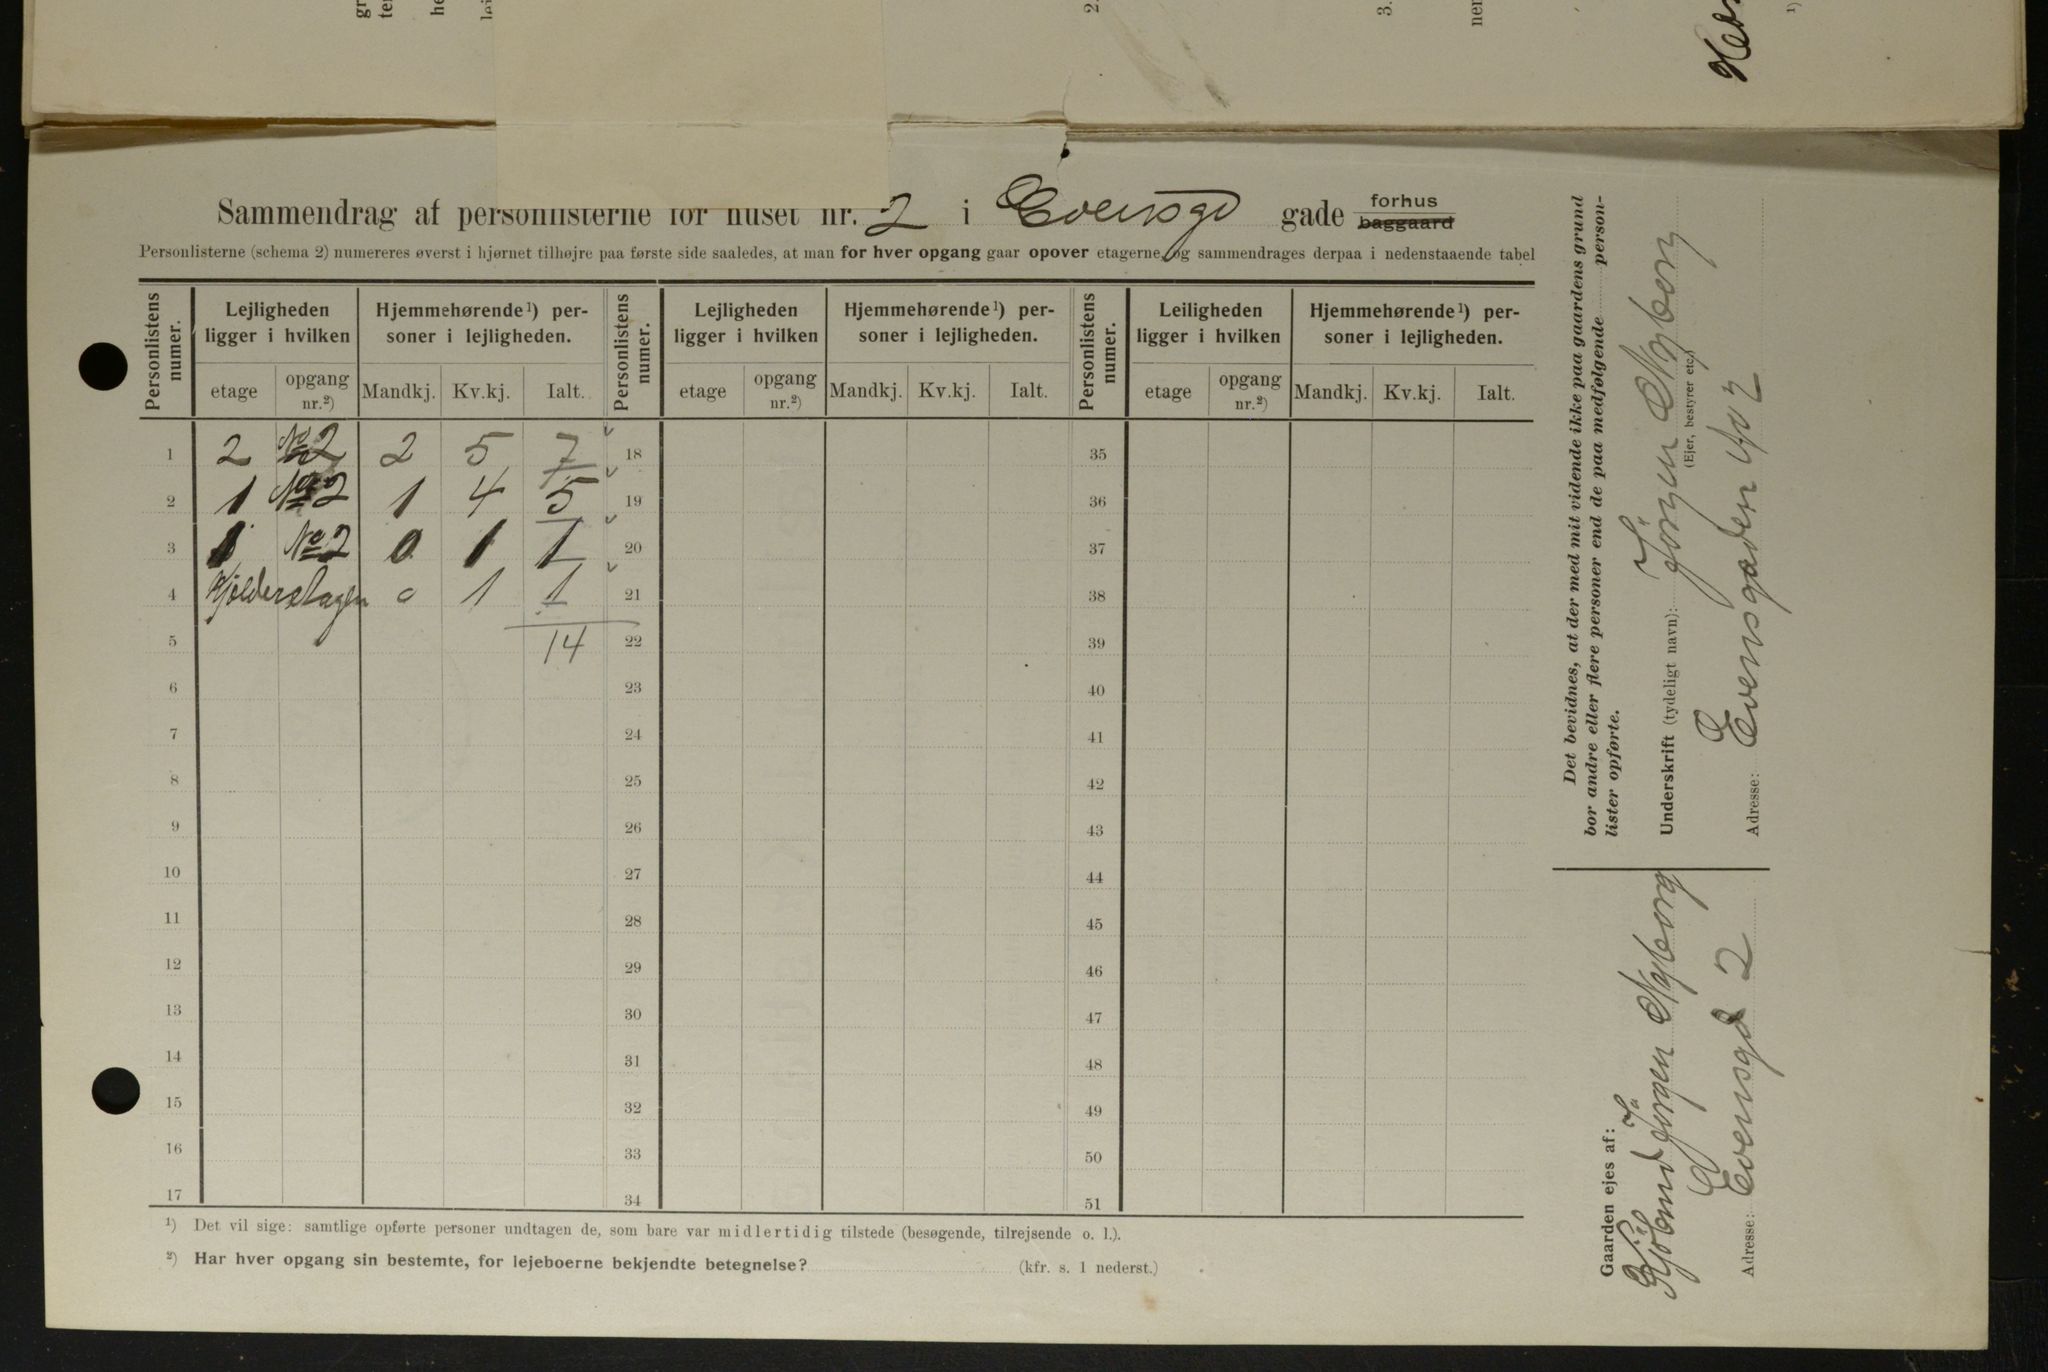 Sammendrag af personlisterne for huset nr. 2 i Evensgd gade forhus baggaard
Personlisterne (schema 2) numereres øverst i hjørnet tilhøjre paa første side saaledes, at man for hver opgang gaar opover etagerne og sammendrages derpaa i nedenstaaende tabel
Personlistens numer. Lejligheden ligger i hvilken Hjemmehørende¹) personer i lejligheden. Personlistens numer. Lejligheden ligger i hvilken Hjemmehørende¹) personer i lejligheden. Personlistens numer. Leiligheden ligger i hvilken Hjemmehørende¹) personer i lejligheden.
etage opgang nr.²) Mandkj. Kv.kj. Ialt. etage opgang nr.²) Mandkj. Kv.kj. Ialt. etage opgang nr.²) Mandkj. Kv.kj. Ialt.
1 2 No 2 2 5 7 18 35
2 1 No 2 1 4 5 19 36
3 1 No 2 0 1 1 20 37
4 Kjölderetagen 0 1 1 21 38
5 14 22 39
6 23 40
7 24 41
8 25 42
9 26 43
10 27 44
11 28 45
12 29 46
13 30 47
14 31 48
15 32 49
16 33 50
17 34 51
¹) Det vil sige: samtlige opførte personer undtagen de, som bare var midlertidig tilstede (besøgende, tilrejsende o. l.).
²) Har hver opgang sin bestemte, for lejeboerne bekjendte betegnelse? (kfr. s. 1 nederst.)
Det bevidnes, at der med mit vidende ikke paa gaardens grund
bor andre eller flere personer end de paa medfølgende person-
lister opførte.
Underskrift (tydeligt navn): Jörgen Nyborg
(Ejer, bestyrer etc.)
Adresse: Evensgaden No 2
Gaarden ejes af:
Kjöbmd Jörgen Nyborg
Adresse: Evensgd 2